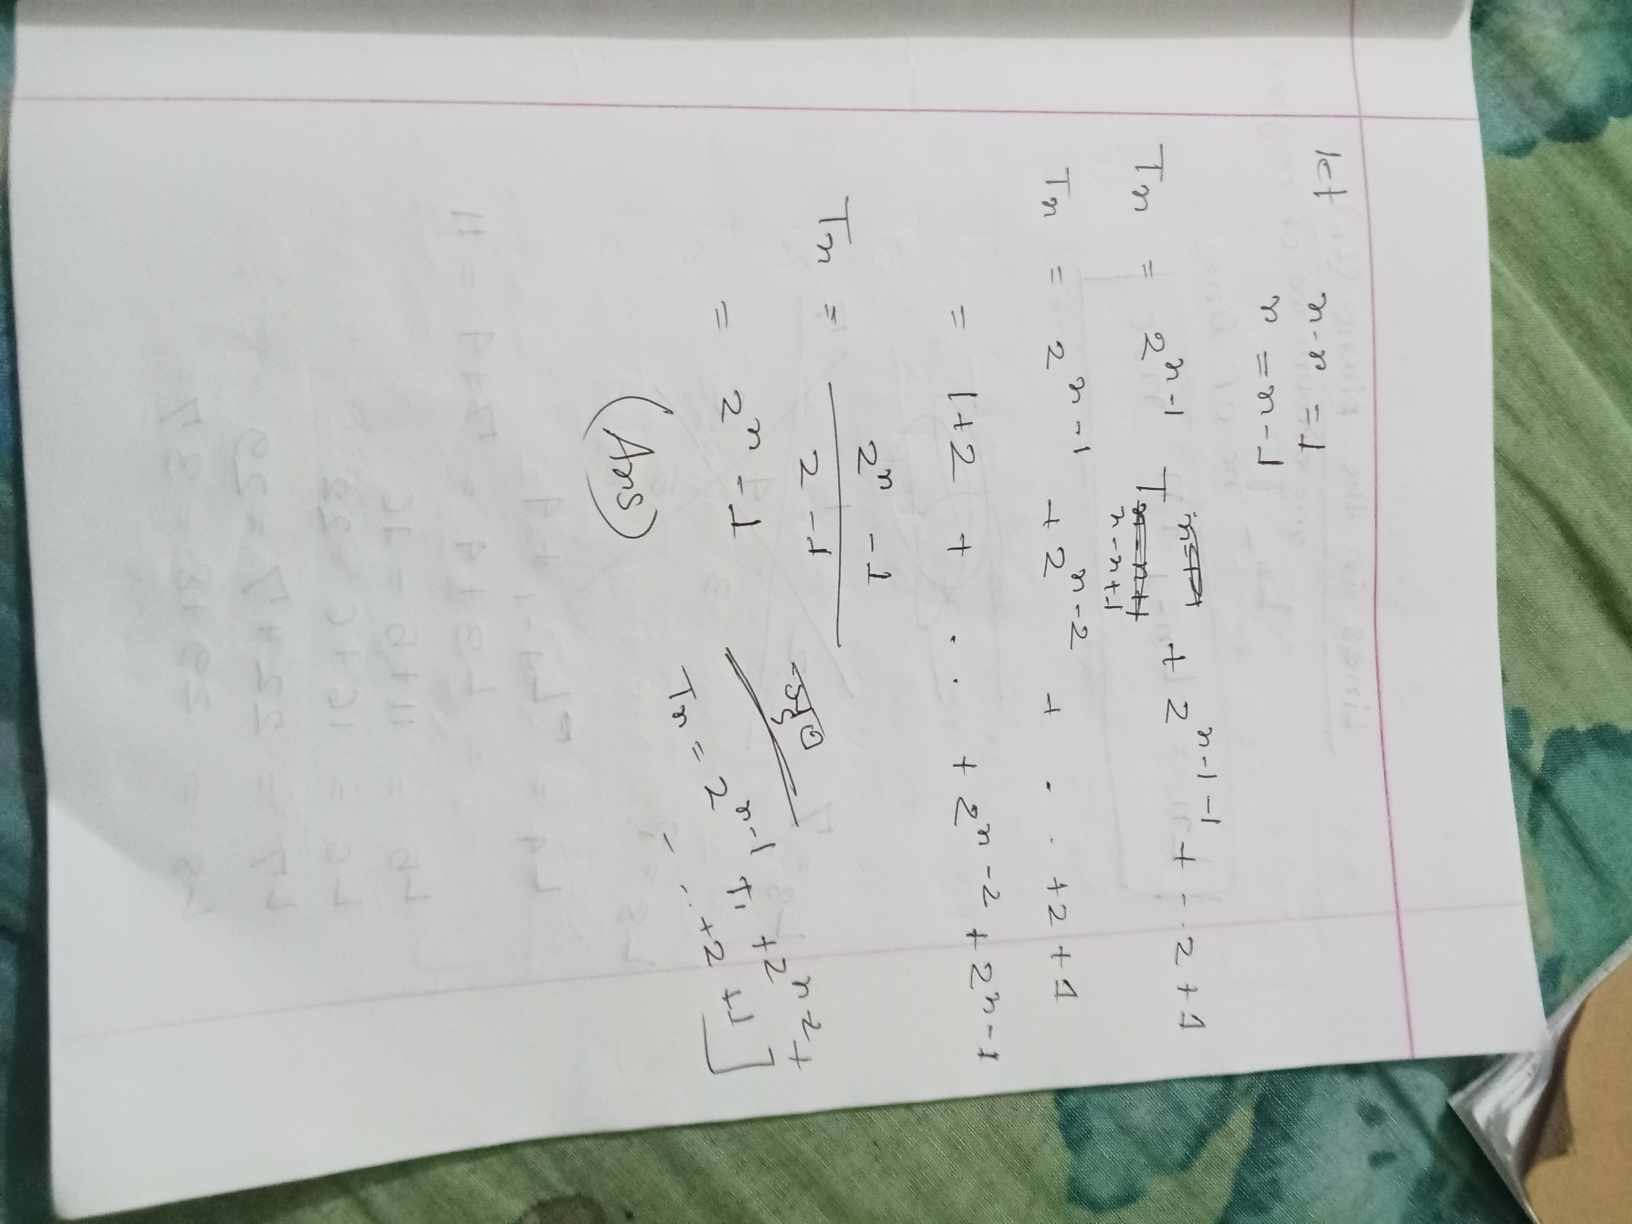 let n-r = 1
r = n-1
Tn = 2^n-1 T n-n+1 + 2^n-1-1 + - . 2 + 1
Tn = 2^n-1 + 2^n-2 + . . +2 + 1
= 1+2 + . . + 2^n-2 + 2^n-1
Tn = 2^n - 1 / 2 - 1
= 2^n - 1
(Ans)
Tn = 2^n-1 T1 + 2^n-2 +
- .. +2 +1]